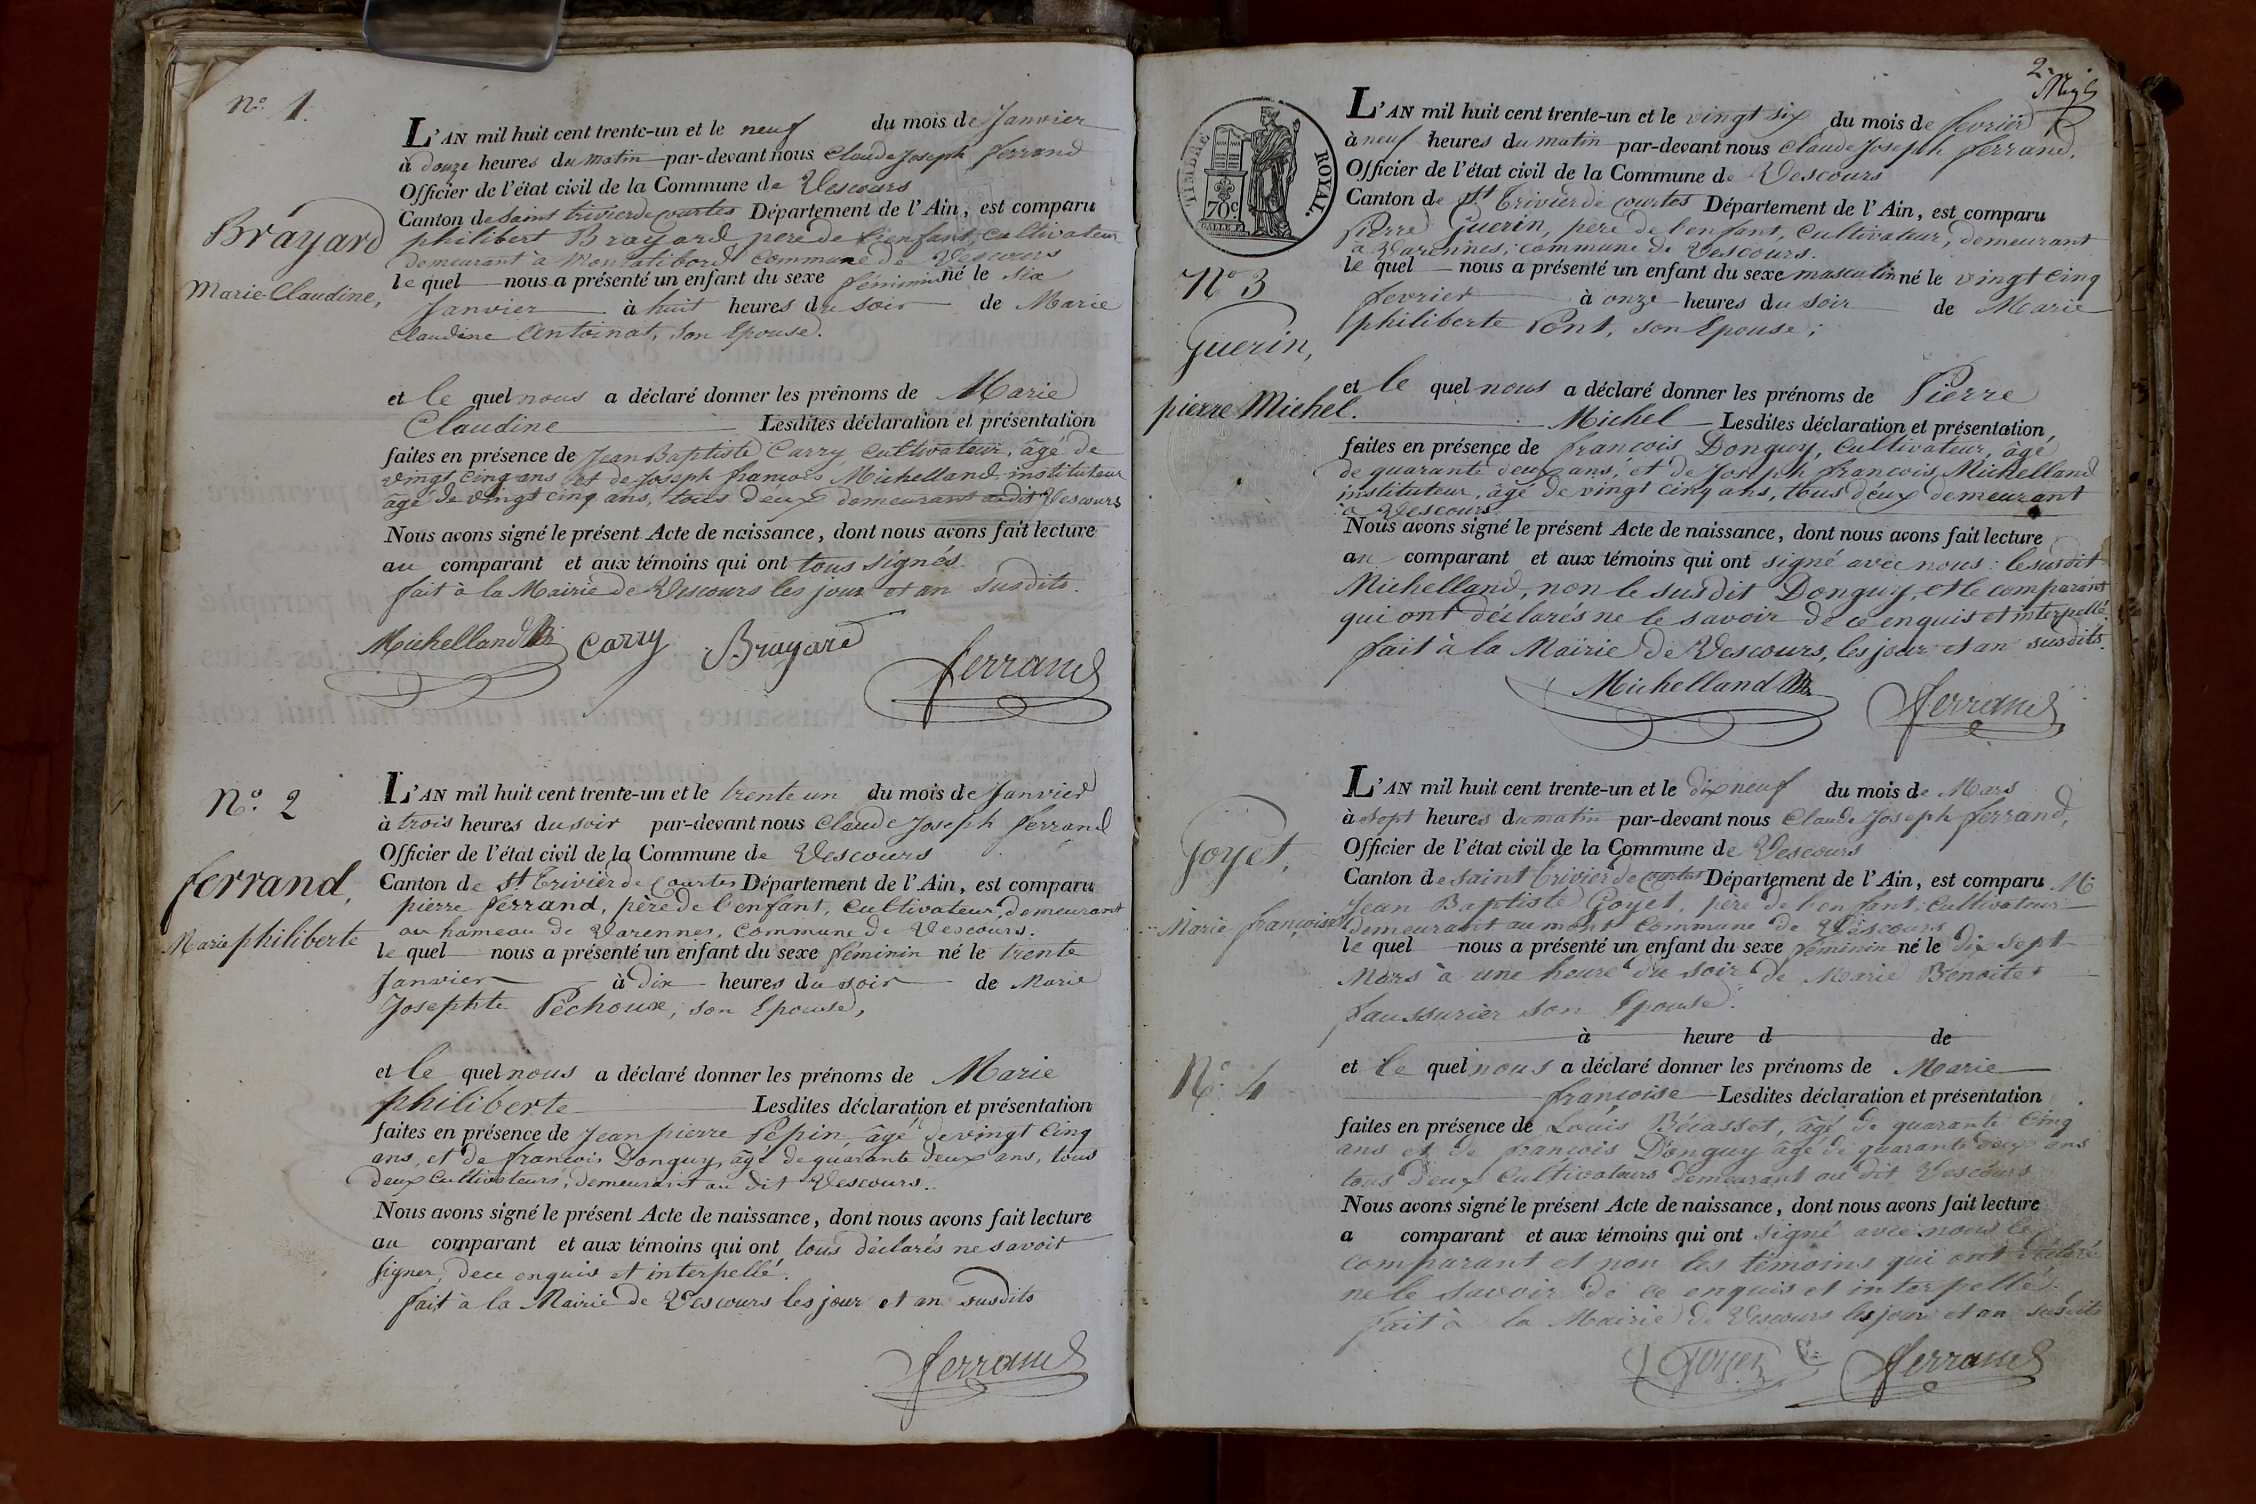 n.° 1.
L'AN mil huit cent trente-un et le neuf du mois de Janvier
à douze heures du matin par-devant nous Claude Joseph ferrand
Officier de l'état civil de la Commune de Vescours
Canton de saint trivier de courtes Département de l'Ain, est comparu
philibert Brayard, pere de l'enfant, cultivateur
demeurant a Commune de Vescours
le quel nous a présenté un enfant du sexe féminin né le six
Janvier à huit heures du soir de Marie
Claudine Antoinat, son Epouse.
Brayard
Marie Claudine,
et le quel nous a déclaré donner les prénoms de Marie
Claudine Lesdites déclaration et présentation
faites en présence de Jean Baptiste Carry, cultivateur, âgé de
vingt cinq ans et de Joseph françois Michelland instituteur
âgé de vingt cinq ans, tous deux demeurant audit Vescours
Nous avons signé le présent Acte de naissance, dont nous avons fait lecture
au comparant et aux témoins qui ont tous signés.
fait à la Mairie de Vescours les jour et an susdits.
Michelland Carry Brayard
ferrand
N.° 2
L'AN mil huit cent trente-un et le trente un du mois de Janvier
à trois heures du soir par-devant nous Claude Joseph ferrand
Officier de l'état civil de la Commune de Vescours
Canton de St Trivier de Courtes Département de l'Ain, est comparu
pierre ferrand, père de l'enfant, cultivateur, demeurant
au hameau de Varennes, Commune de Vescours.
le quel nous a présenté un enfant du sexe féminin né le trente
Janvier à dix heures du soir de Marie
Josephte Pechoux, son Epouse,
ferrand,
Marie philiberte
et le quel nous a déclaré donner les prénoms de Marie
philiberte Lesdites déclaration et présentation
faites en présence de Jean pierre Pepin, âgé de vingt cinq
ans, et de françois Donguy, âgé de quarante deux ans, tous
deux cultivateurs, demeurant au dit Vescours.
Nous avons signé le présent Acte de naissance, dont nous avons fait lecture
au comparant et aux témoins qui ont tous déclarés ne savoir
signer, de ce enquis et interpellé.
fait à la Mairie de Vescours les jour et an susdits
ferrand
2.
TIMBRE ROYAL.
70c
L'AN mil huit cent trente-un et le vingt six du mois de fevrier
à neuf heures du matin par-devant nous Claude Joseph ferrand,
Officier de l'état civil de la Commune de Vescours
Canton de St Trivier de Courtes Département de l'Ain, est comparu
Pierre Guerin, père de l'enfant, cultivateur, demeurant
a Varennes, commune de Vescours.
le quel nous a présenté un enfant du sexe masculin né le vingt cinq
fevrier à onze heures du soir de Marie
philiberte Pont, son Epouse;
N° 3
Guerin,
pierre Michel.
et le quel nous a déclaré donner les prénoms de Pierre
Michel Lesdites déclaration et présentation,
faites en présence de françois Donguy, cultivateur, âgé
de quarante deux ans, et de Joseph françois Michelland
instituteur, âgé de vingt cinq ans, tous deux demeurant
a Vescours
Nous avons signé le présent Acte de naissance, dont nous avons fait lecture
au comparant et aux témoins qui ont signé avec nous: le susdit
Michelland, non le susdit Donguy, et le comparant
qui ont déclarés ne le savoir de ce enquis et interpellé.
fait à la Mairie de Vescours, les jour et an susdits.
Michelland
ferrand
L'AN mil huit cent trente-un et le dix neuf du mois de Mars
à sept heures du matin par-devant nous Claude Joseph ferrand,
Officier de l'état civil de la Commune de Vescours
Canton de saint trivier de courtes Département de l'Ain, est comparu
Jean Baptiste Goyet, père de l'enfant, cultivateur
demeurant au mont Commune de Vescours
le quel nous a présenté un enfant du sexe féminin né le dix sept
Mars à une heure du soir de Marie Benoite
faussurier son Epouse.
à heure d de
Goyet,
Marie françoise
N.° 4
et le quel nous a déclaré donner les prénoms de Marie
françoise Lesdites déclaration et présentation
faites en présence de Louis Bécasset, âgé de quarante cinq
ans et de françois Donguy âgé de quarante deux ans
tous deux cultivateurs demeurant au dit Vescours
Nous avons signé le présent Acte de naissance, dont nous avons fait lecture
a comparant et aux témoins qui ont signé avec nous le
comparant et non les témoins qui ont déclaré
ne le savoir de ce enquis et interpellés.
fait à la Mairie de Vescours les jour et an susdits
Goyet ferrand